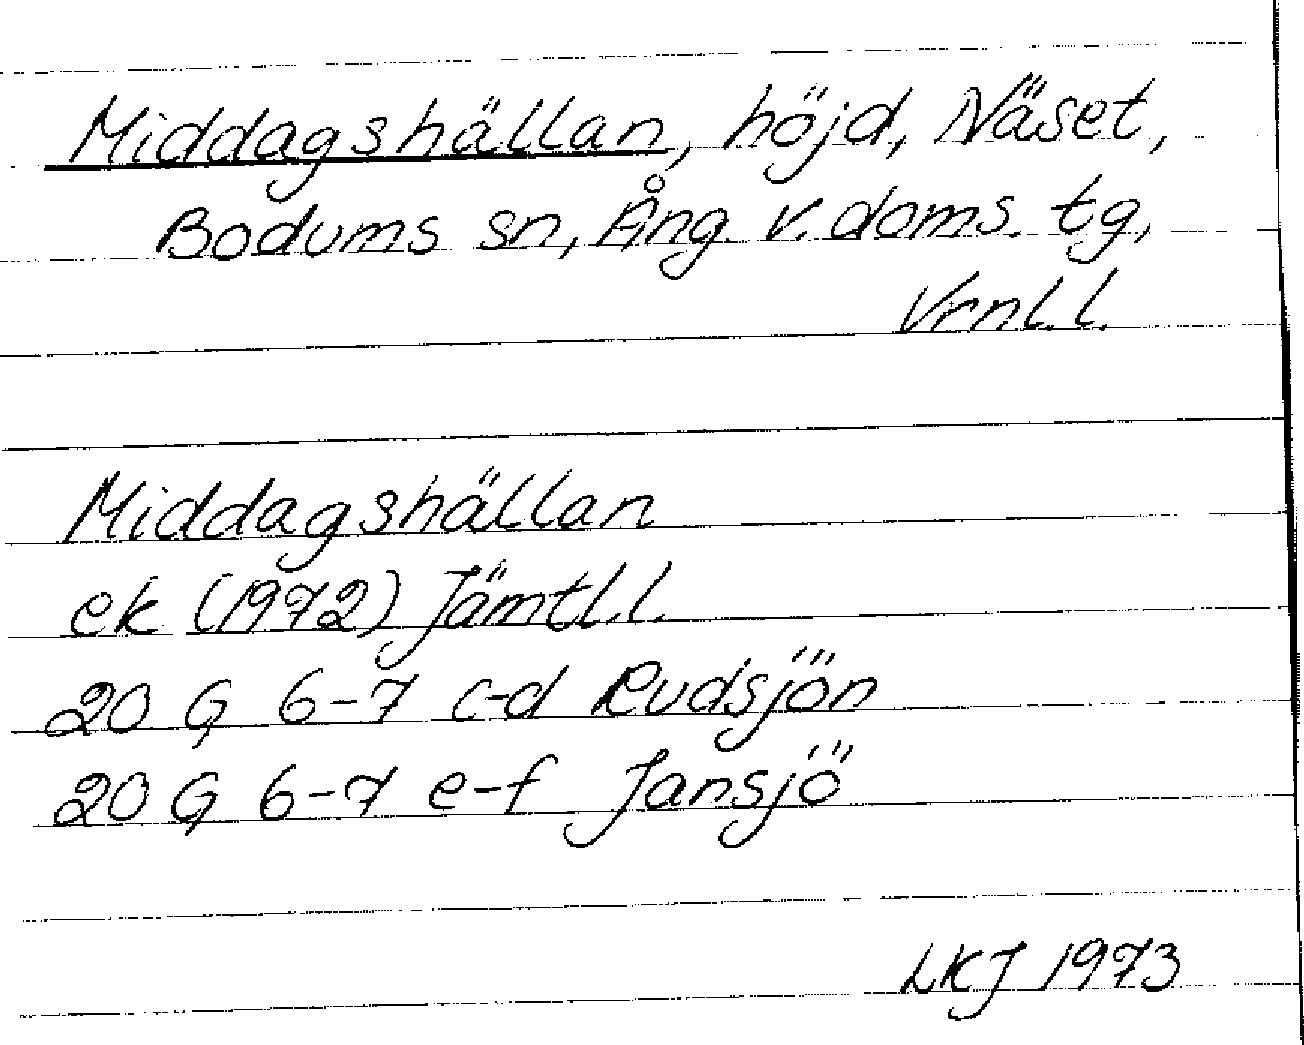 Middagshällan, höjd, Näset,
Bodums sn, Ång. v. doms. tg,
Vrnl. l.
Middagshällan
ek (1972) Jämtl. l.
20 G 6-7 c-d Rudsjön
20 G 6-7 e-f Jansjö
LKJ 1973